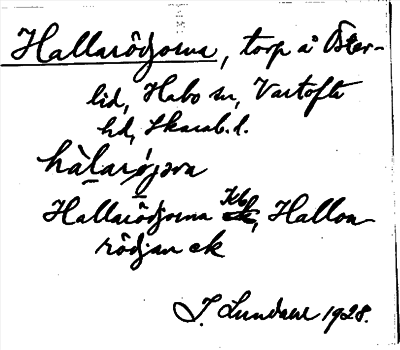 Hallarödjorna, torp å Öster-
lid, Habo sn, Vartofta
hd, Skarab. l.
hàlarø̀jɔrna
Hallarödjorna Kbl, Hallon
rödjan ek
J. Lundahl 1928.